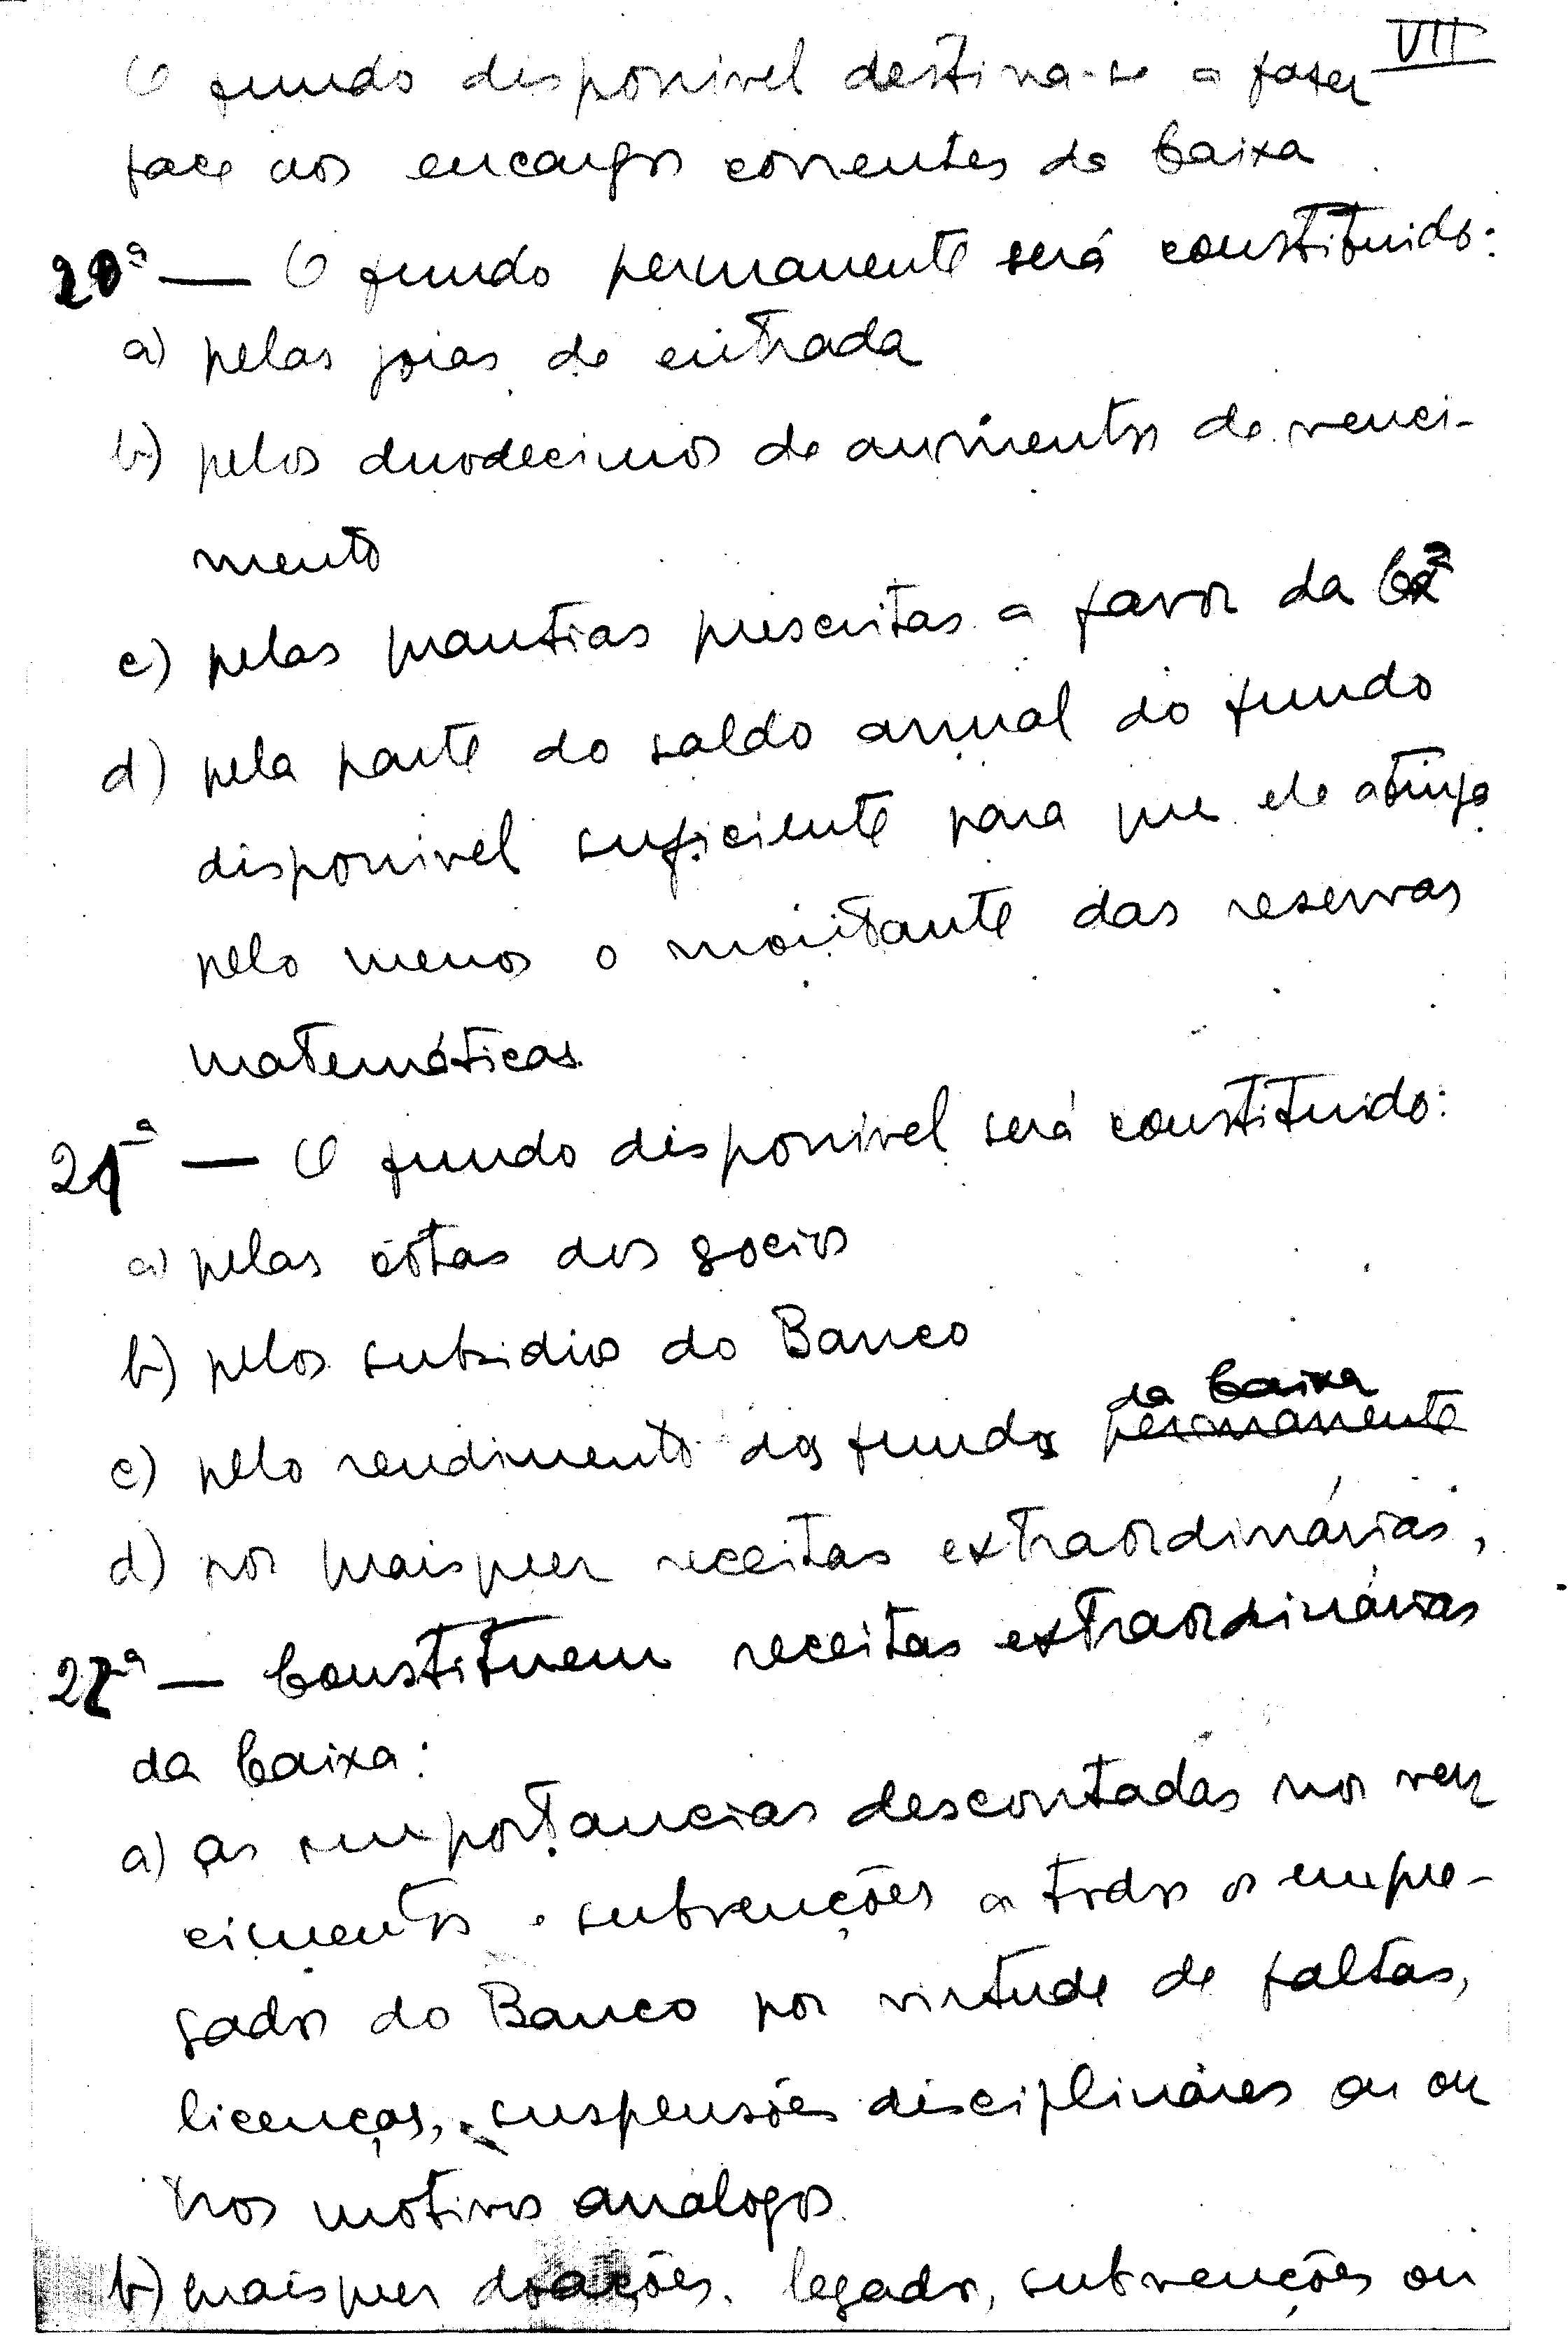 VII
O fundo disponivel destina-se a fazer
face aos encargos correntes da Caixa
20ª — O fundo permanente será constituido:
a) pelas joias de entrada
b) pelos duodecimos de aumentos de venci-
mento
c) pelas quantias prescritas a favor da Cª
d) pela parte do saldo anual do fundo
disponivel suficiente para que ele atinja
pelo menos o montante das reservas
matemáticas
21ª — O fundo disponivel será constituido:
a) pelas cotas dos socios
b) pelos subsidios do Banco
da Caixa
c) pelo rendimento dos fundos permanente
d) por quaisquer receitas extraordinárias,
22ª — Constituem receitas extraordinárias
da Caixa:
a) as importancias descontadas nos ven
cimentos e subvenções a todos os empre-
gados do Banco por virtude de faltas,
licenças, suspensões disciplinares ou ou
tros motivos analogos.
b) quaisquer doações, legados, subvenções ou